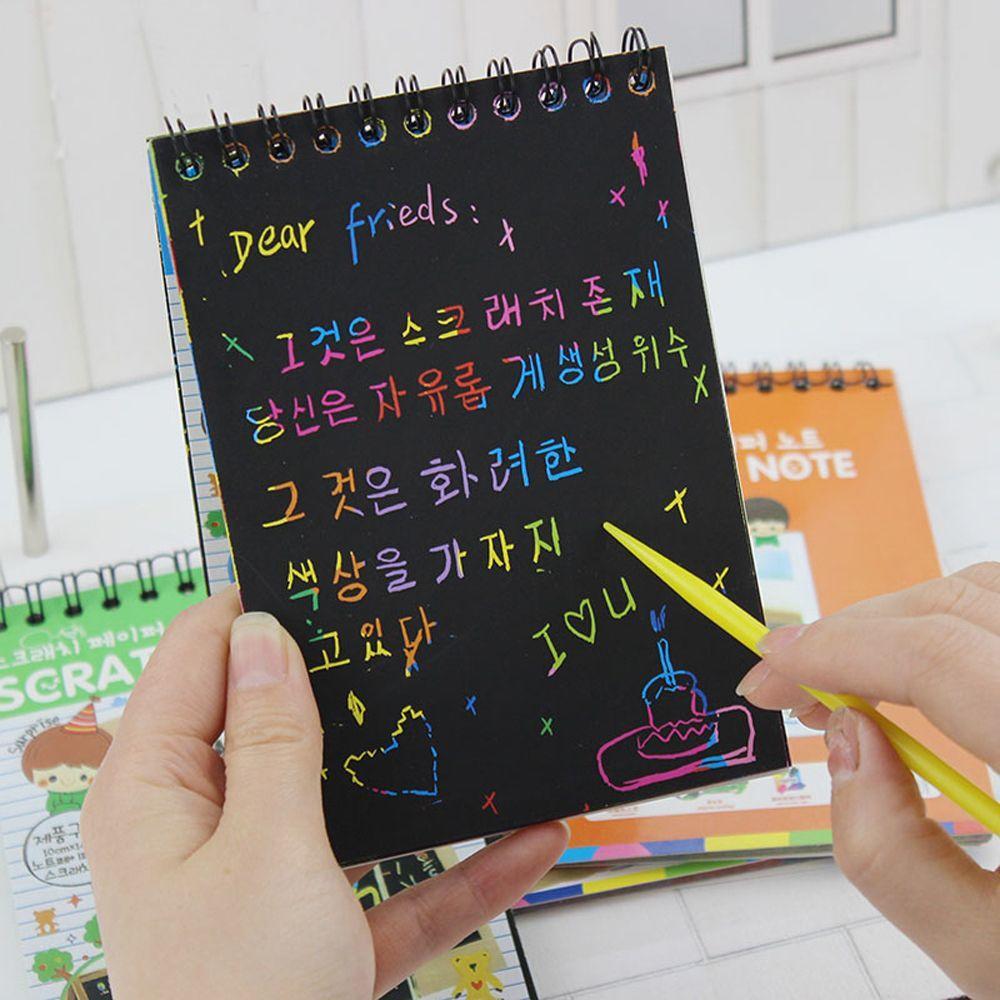 Dear frieds:
그것은 스크래치존재
당신은 자유롭게 생성위수
그것은 화려한
색상을 가자지
고있다
I♡U
퍼 노트
NOTE
스크래치 페이퍼
SCRAT
Surprise
제품구